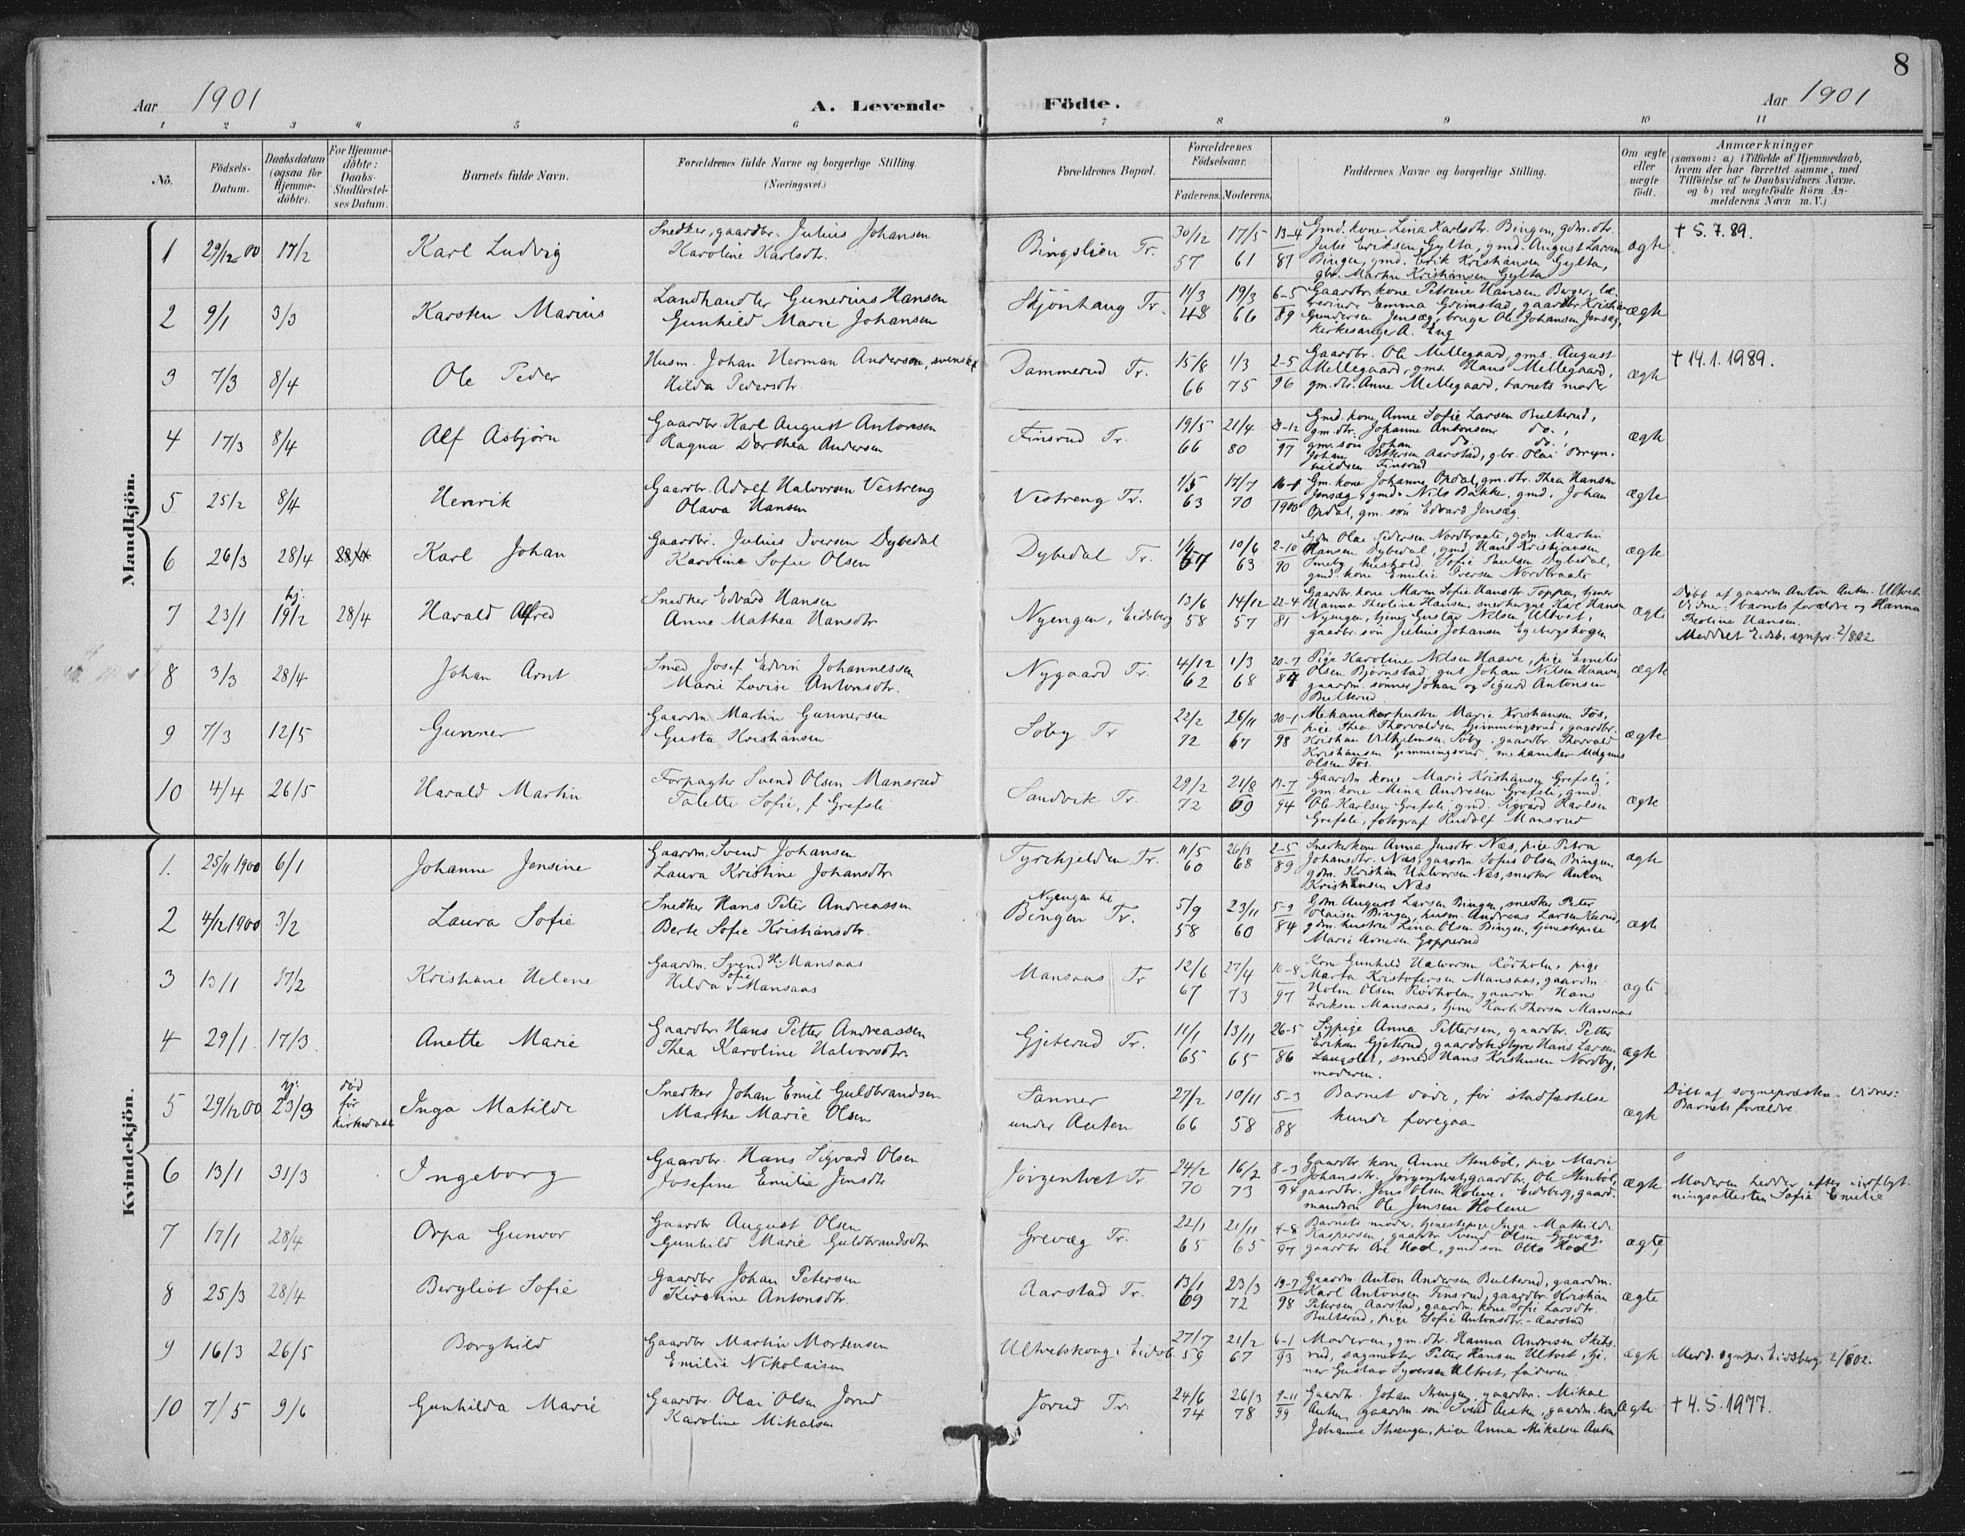 8
Aar 1901
A. Levende
Födte.
Aar 1901
1 2 3 4 5 6 7 8 9 10 11
No.
Födsels-Datum.
Daabsdatum (ogsaa for Hjemme-döbte).
For Hjemme-döbte: Daabs-Stadfæstel-ses Datum.
Barnets fulde Navn.
Forældrenes fulde Navne og borgerlige Stilling.
(Næringsvei.)
Forældrenes Bopæl.
Forældrenes Födselsaar.
Faderens. Moderens.
Faddernes Navne og borgerlige Stilling.
Om ægte eller uægte födt.
Anmærkninger
(saasom: a) i Tilfælde af Hjemmedaab,
hvem der har forrettet samme, med
Tilföielse af to Daabsvidners Navne,
og b) ved uægtefödte Börn An-
melderens Navn m. V.)
Mandkjön.
1 29/12 00 17/2 Karl Ludvig
Snedker, gaardbr. Julius Johansen
Karoline Karlsdtr.
Bingslien Tr.
30/12 57 17/5 61 13-4 81
Gmd. kone Lina Karlsdtr. Bingen, gdm. dtr.
Julie Eriksen Gylta, gmd. August Larsen
Bingen, gmd. Erik Kristiansen Gylta,
gbr. Martin Kristiansen Gylta
ægte
† 5.7.89.
2 9/1 3/3 Karsten Marius
Landhandler Gunerius Hansen
Gunhild Marie Johansen
Skjönhaug Tr.
11/3 48 19/3 66 6-5 89
Gaardbr. kone Petrine Hansen Berger, læ-
rerinde Emma Grimstad, gaardbr. Kristian
Gundersen Jensæg, bruge Ole Johansen Jensæg,
kirkesanger A. Eng
ægte
3 7/3 8/4 Ole Peder
Husm. Johan Herman Anderson, svensker
Hilda Pedersdtr.
Dammerud Tr.
15/8 66 1/3 75 2-5 96
Gaardbr. Ole Mellegaard, gms. August
Mellegaard, gms. Hans Mellegaard,
gm. dtr. Anne Mellegaard, barnets moder
ægte
† 14.1.1989.
4 17/3 8/4 Alf Asbjörn
Gaardbr. Karl August Antonsen
Ragna Dorthea Andersen
Finsrud Tr.
19/5 66 21/4 80 29-12 97
Gmd. kone Anne Sofie Larsen Bulterud,
gm. dtr. Johanne Antonsen do.,
gm. sön Johan do. do.,
Johan Pettersen Aarstad, gbr. Olai Bryn-
hildsen Finsrud
ægte
5 25/2 8/4 Henrik
Gaardbr. Adolf Halvorsen Vestreng
Olava Hansen
Vestreng Tr.
1/5 63 17/7 70 1900
Gm. kone Johanne Opdal, gm. dtr. Thea Hansen
Jensæg, gmd. Nils Bakke, gmd. Johan
Opdal, gm. sön Edvard Jensæg.
ægte
6 26/3 28/4 Karl Johan
Gaardbr. Julius Iversen Dybedal
Karoline Sofie Olsen
Dybedal Tr.
57 10/6 63 2-10 90
Gdm. Olai Pedersen Nordbraate, gdm. Martin
Hansen Dybedal, gmd. Hans Kristiansen
Smeby, hushold. Sofie Paulsen Dybedal,
gmd. kone Emilie Iversen Nordbraate
ægte
7 23/1 hj. 19/2 28/4 Harald Alfred
Snedker Edvard Hansen
Anne Mathea Hansdtr
Nyengen, Eidsberg
13/6 58 14/12 57 22-4 81
Gaardbr. kone Maren Sofie Hansdtr Toppen, tjener
Hanna Theoline Hansen, snerkergut Karl Hansen
Nyengen, tjener Gustav Nilsen Ultvet,
gaardbr. sön Julius Johansen Egebergskogen
ægte
Döbt af gaardm. Anton Anton. Ultvet.
Vidner: barnets forældre og Hanna
Theoline Hansen.
Meddelt Eidsb. sognpr. 2/802
8 3/3 28/4 Johan Arnt
Smed Josef Edvin Johannessen
Marie Lovise Antonsdtr.
Nygaard Tr.
4/12 62 1/3 68 20-7 87
Pige Karoline Nilsen Haave, pige Emilie
Olsen Bjørnstad, gut Johan Nilsen Haave,
gaardm. sønner Johan og Sigurd Antonsen
Bulterud
ægte
9 7/3 12/5 Gunner
Gaardm. Martin Gunnersen
Gusta Kristiansen
Söby Tr
22/2 72 26/11 67 30-1 98
Mekanikerhustru Marie Kristiansen Fös,
pige Thea Thorvaldsen Gimmingsrud, gaardbr.
Kristian Vilhelmsen Söby, gaardbr. Thorvald
Kristiansen Gimmingsrud, mekaniker Magnus
Olsen Fös.
ægte
10 4/4 26/5 Harald Martin
Forpagter Svend Olsen Mansrud
Talette Sofie, f. Grefsli
Sandvik Tr.
29/2 72 21/8 69 19-7 94
Gaardm. kone Marie Kristiansen Grefsli,
gm. kone Mina Andresen Grefsli, gmd.
Ole Karlsen Grefsli, gmd. Sigvard Karlsen
Grefsli, fotograf Rudolf Mansrud
ægte
Kvindekjön.
1. 25/11 1900 6/1 Johanne Jensine
Gaardm. Svend Johansen
Laura Kristine Johansdtr.
Tyrihjelden Tr.
11/5 60 26/3 68 2-5 89
Snerkerkone Anna Jensdtr. Næs, pige Petra
Johansdtr. Næs, gaardm. Sofus Olsen Bingen,
gdm. Kristian Halvorsen Næs, snerker Anton
Kristiansen Næs
ægte
2 4/12 1900 3/2 Laura Sofie
Snedker Hans Peter Andreassen
Berte Sofie Kristiansdtr.
Nyengen
Bingen Tr.
5/9 58 23/11 60 5-9 84
Gdm. August Larsen Bingen, snedker Peter
Olaisen Bingen, husm. Andreas Larsen
gdm. hustru Lina Olsen Bingen, tjenestepige
Marie Arnesen Gopperud
ægte
3 13/1 17/2 Kristiane Helene
Gaardm. Svend H. Mansaas
Hilda Sofie Mansaas
Mansaas Tr
12/6 67 27/4 73 10-8 97
Kone Gunhild Halvorsen Rödholm, pige
Marta Kristofersen Mansaas, gaardm.
Holm Olsen Rödholm, gaardm. Hans
Eriksen Mansaas, tjener Karl Thorsen Mansaas
ægte
4 29/1. 17/3. Anette Marie
Gaardbr. Hans Petter Andreassen
Thea Karoline Halvorsdtr.
Gjeterud Tr.
11/1 65 13/11 65 26-5 86
Sypige Anna Pettersen, gaardbr. Petter
Eriksen Gjeterud, gaardbestyrer Hans Larsen
Laugslet, smed Hans Kristiansen Nordby,
moderen.
ægte
5 29/12 00 hj. 23/3 död før kirkedaab
Inga Matilde
Snedker Johan Emil Guldbrandsen
Marthe Marie Olsen
Sanner
under Auten
27/2 66 10/11 58 5-3 88
Barnet döde, för stadfæstelse
kunde foregaa
ægte
Döbt af sognepræsten. Vidner:
Barnets forældre.
6 13/1 31/3 Ingeborg
Gaardbr. Hans Sigvard Olsen
Josefine Emilie Jensdtr
Jörgentvet Tr.
24/2 70 16/2 73 8-3 94
Gaardbr. kone Anne Stenböl, pige Marie
Johansdtr. Jörgentvet, gaardbr. Ole Stenböl,
gaardbr. Jens Olsen Holene i Eidsberg, gaard-
mandsön Ole Jensen Holene
ægte
Moderen hedder efter indflyt-
ningsattesten Sofie Emilie
7 17/1 28/4 Orpa Gunvor
Gaardbr August Olsen
Gunhild Marie Guldbrandsdtr
Grevæg Tr.
22/1 65 21/11 65 4-8 97
Barnets moder, tjenestepige Inga Mathilde
Kaspersen, gaardbr Svend Olsen Grevæg,
gaardbr Ole Hoel, gmd sön Otto Hoel
ægte
8 25/3 28/4 Bergliot Sofie
Gaardbr Johan Petersen
Kirstine Antonsdtr.
Aarstad Tr.
13/1 69 23/3 72 19-7 98
Gaardm. Anton Andersen Bulterud, gaardm.
Karl Antonsen Finsrud, gaardbr. Kristian
Petersen Aarstad, gaardm. kone Sofie Larsdtr.
Bulterud, pige Sofie Antonsdtr. Aarstad
ægte
9 16/3 26/5 Borghild
Gaardbr Martin Mortensen
Emilie Nikolaisen
Ultvetskoug i Eidsb.
27/7 59 21/2 67 6-1 93
Moderen, gm. dtr. Hanna Andresen Skits-
rud, sagmester Peter Hansen Ultvet, tje-
ner Gustav Syversen Ultvet, faderen
ægte
Medd. sognpr. i Eidsberg 2/802.
10 7/5 9/6 Gunhilda Marie
Gaardbr. Olai Olsen Jorud
Karoline Mikalsen
Jorud Tr.
24/6 74 26/3 78 9-11 99
Gaardbr. Johan Strengen, gaardbr. Mikal
Auten, gaardm. sön Svend Auten, gaardm. kone
Johanne Strengen, pige Anna Mikalsen Auten
ægte
† 4.5.1977.